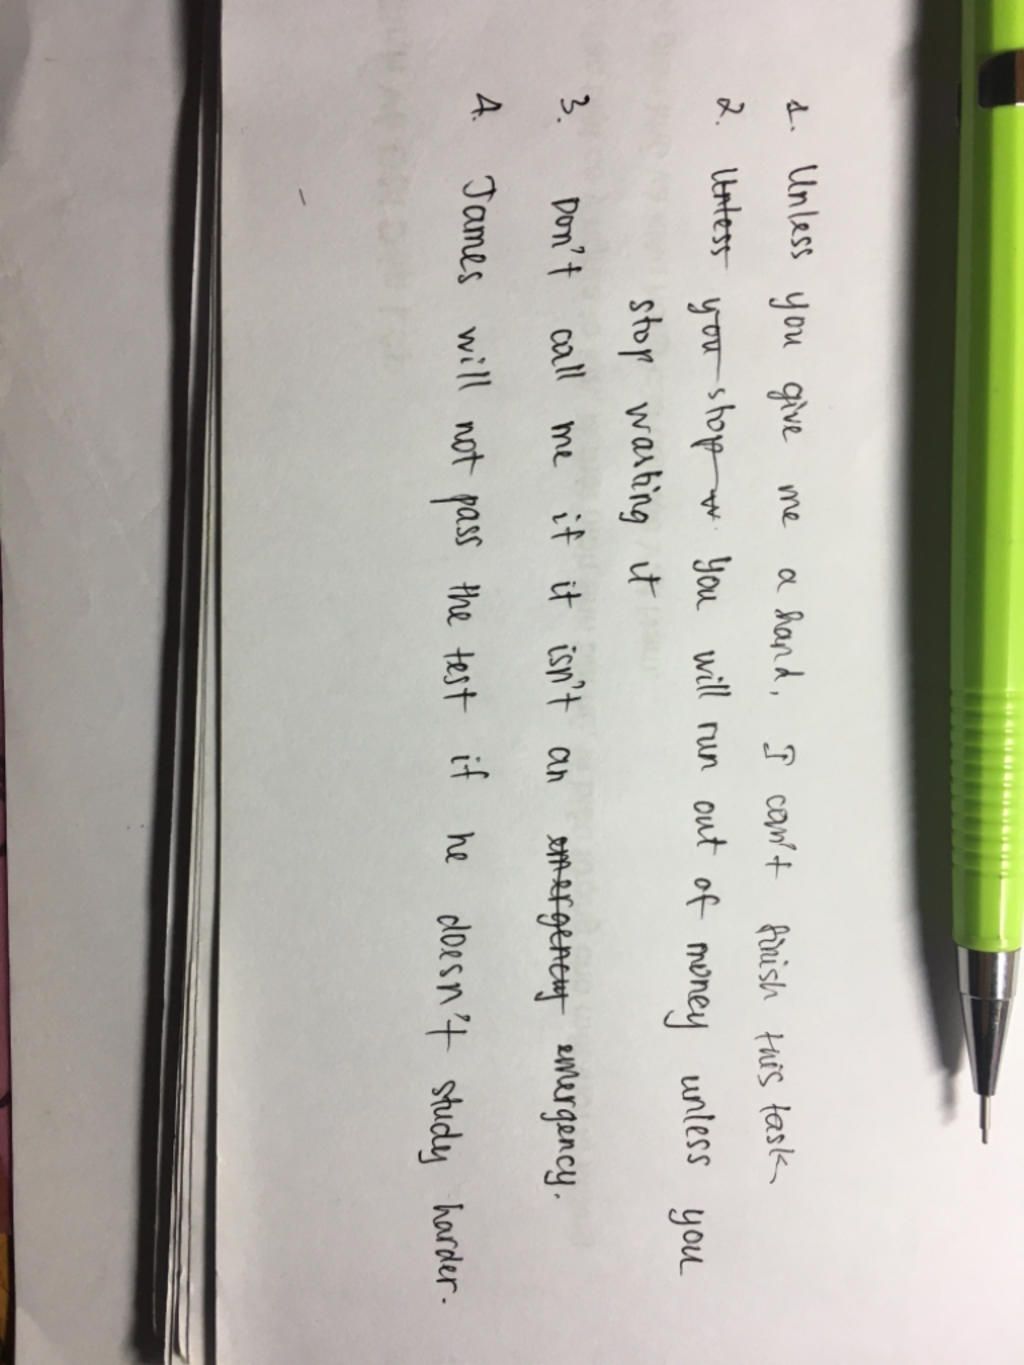 1. Unless you give me a hand, I can't finish this task
2. Unless you stop w. You will run out of money unless you
stop wasting it
3. Don't call me if it isn't an emergency emergency.
4. James will not pass the test if he doesn't study harder.